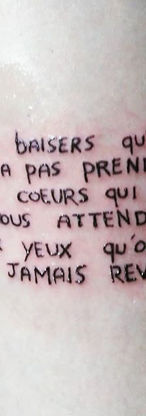 baisers qu
A PAS PREN
COEURS qui
OUS ATTEND
YEUX qu'o
JAMAIS REV